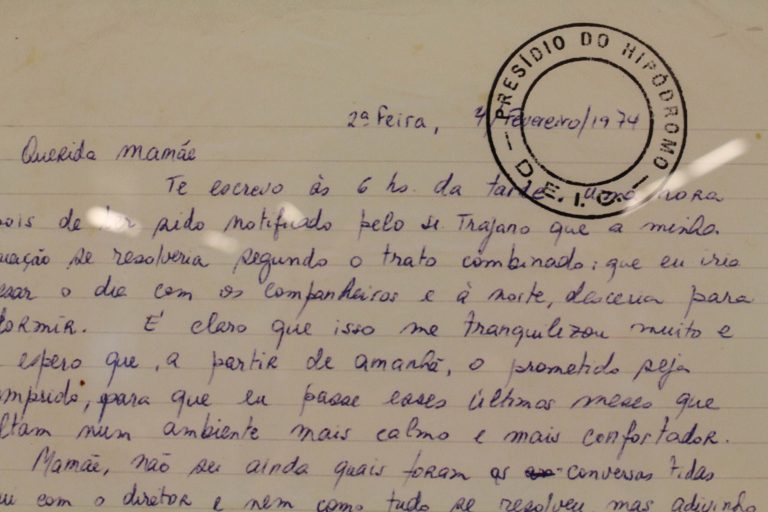 PRESÍDIO DO HIPÓDROMO
— D.E.I.C. —
2ª Feira, 4/Fevereiro/1974
Querida Mamãe
Te escrevo às 6 hs. da tarde uma hora
pois de ter sido notificado pelo sr. Trajano que a minha
uação se resolveria segundo o trato combinado: que eu iria
ssar o dia com os companheiros e à noite, desceria para
dormir. É claro que isso me tranquilizou muito e
espero que, a partir de amanhã, o prometido seja
mprido, para que eu passe esses últimos meses que
ltam num ambiente mais calmo e mais confortador.
Mamãe, não sei ainda quais foram as conversas tidas
ui com o diretor e nem como tudo se resolveu mas adivinho